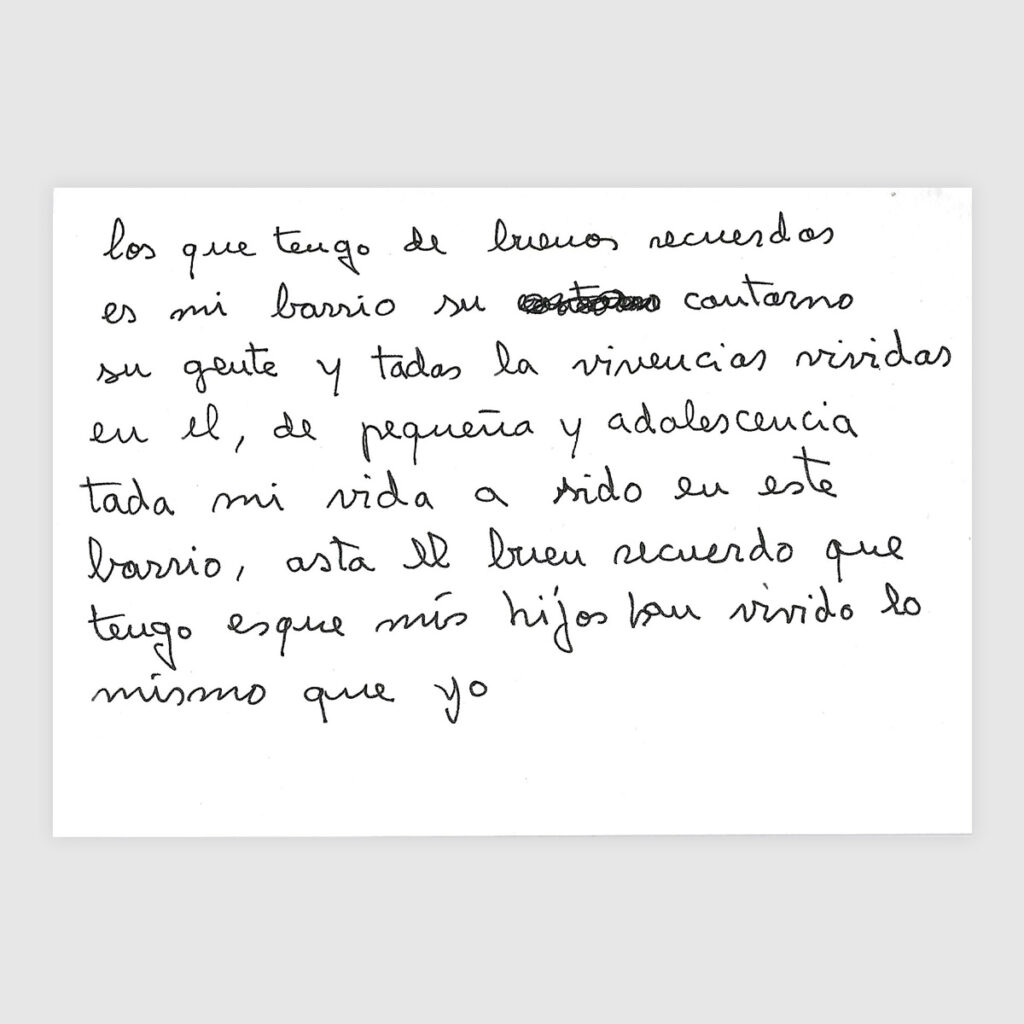 los que tengo de buenos recuerdos
es mi barrio su contorno
su gente y todas la vivencias vividas
en el, de pequeña y adolescencia
toda mi vida a sido en este
barrio, asta el buen recuerdo que
tengo esque mis hijos han vivido lo
mismo que yo